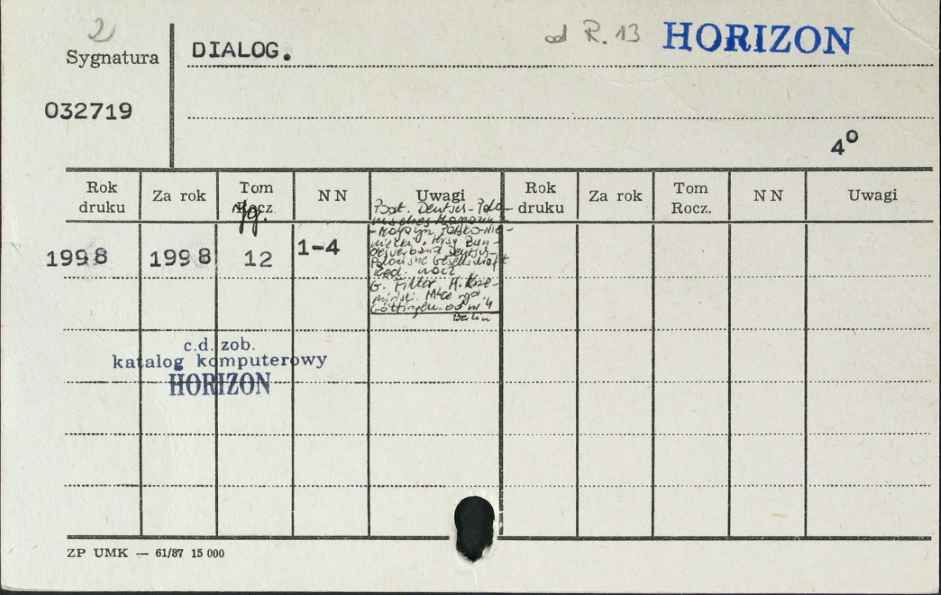 2
d R. 13 HORIZON
Sygnatura DIALOG.
032719
4°
Rok druku Za rok Tom Rocz. NN Uwagi Rok druku Za rok Tom Rocz. NN Uwagi
Jg.
1998 1998 12 1-4
Podt. Deutsch-Pol-
nisches Magazin
-Magazyn Polsko-Nie-
miecki. Hrsg. Bun-
desverband Deutsch-
Polnische Gesellschaft
Red. nacz.
G. Filter, M. Krze-
miński. Mce wyd.
Göttingen. od nr 4
Berlin
c.d. zob.
katalog komputerowy
HORIZON
ZP UMK — 61/87 15 000